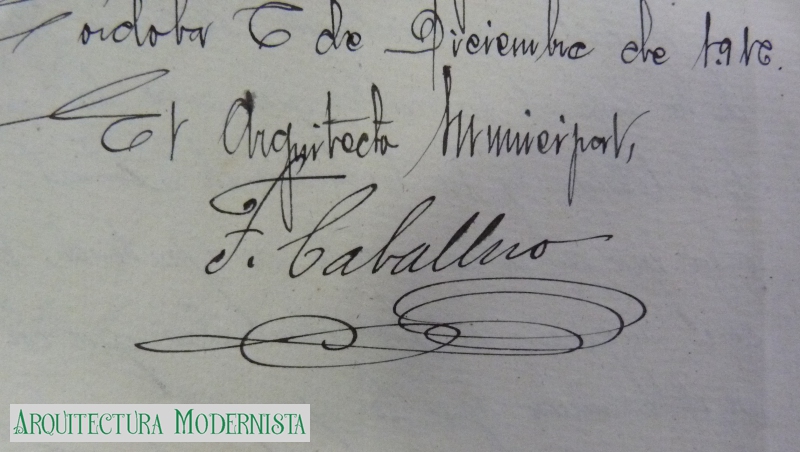 Córdoba 6 de Diciembre de 1.916.
El Arquitecto Municipal,
F. Caballero
ARQUITECTURA MODERNISTA